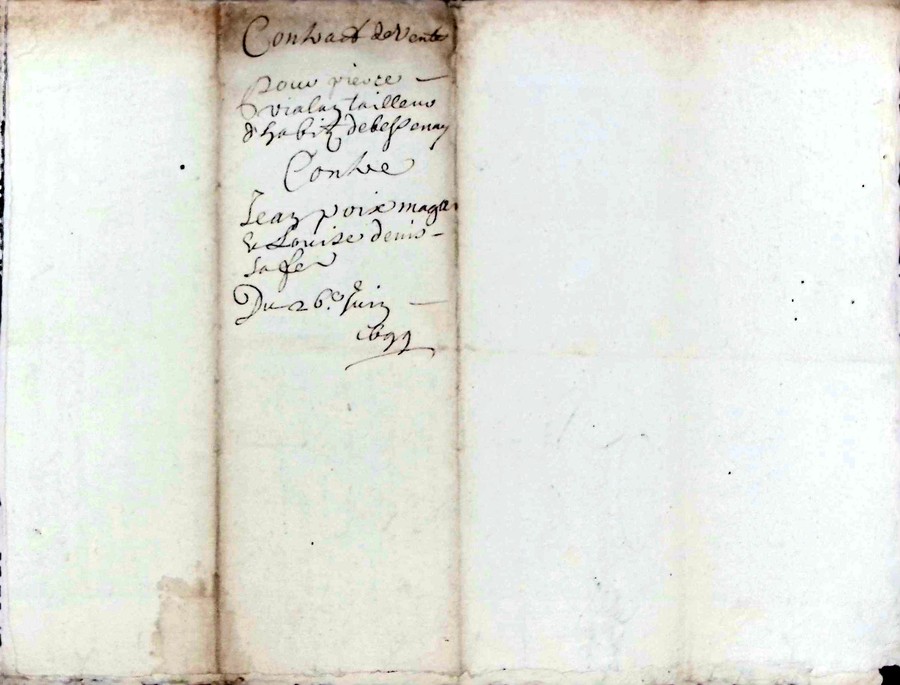 Contract de Vente
Pour pierre
vialay tailleur
d'habitz de bessenay
Contre
Jean poix
& Louise denis
sa fe
Du 26e Juin
1699